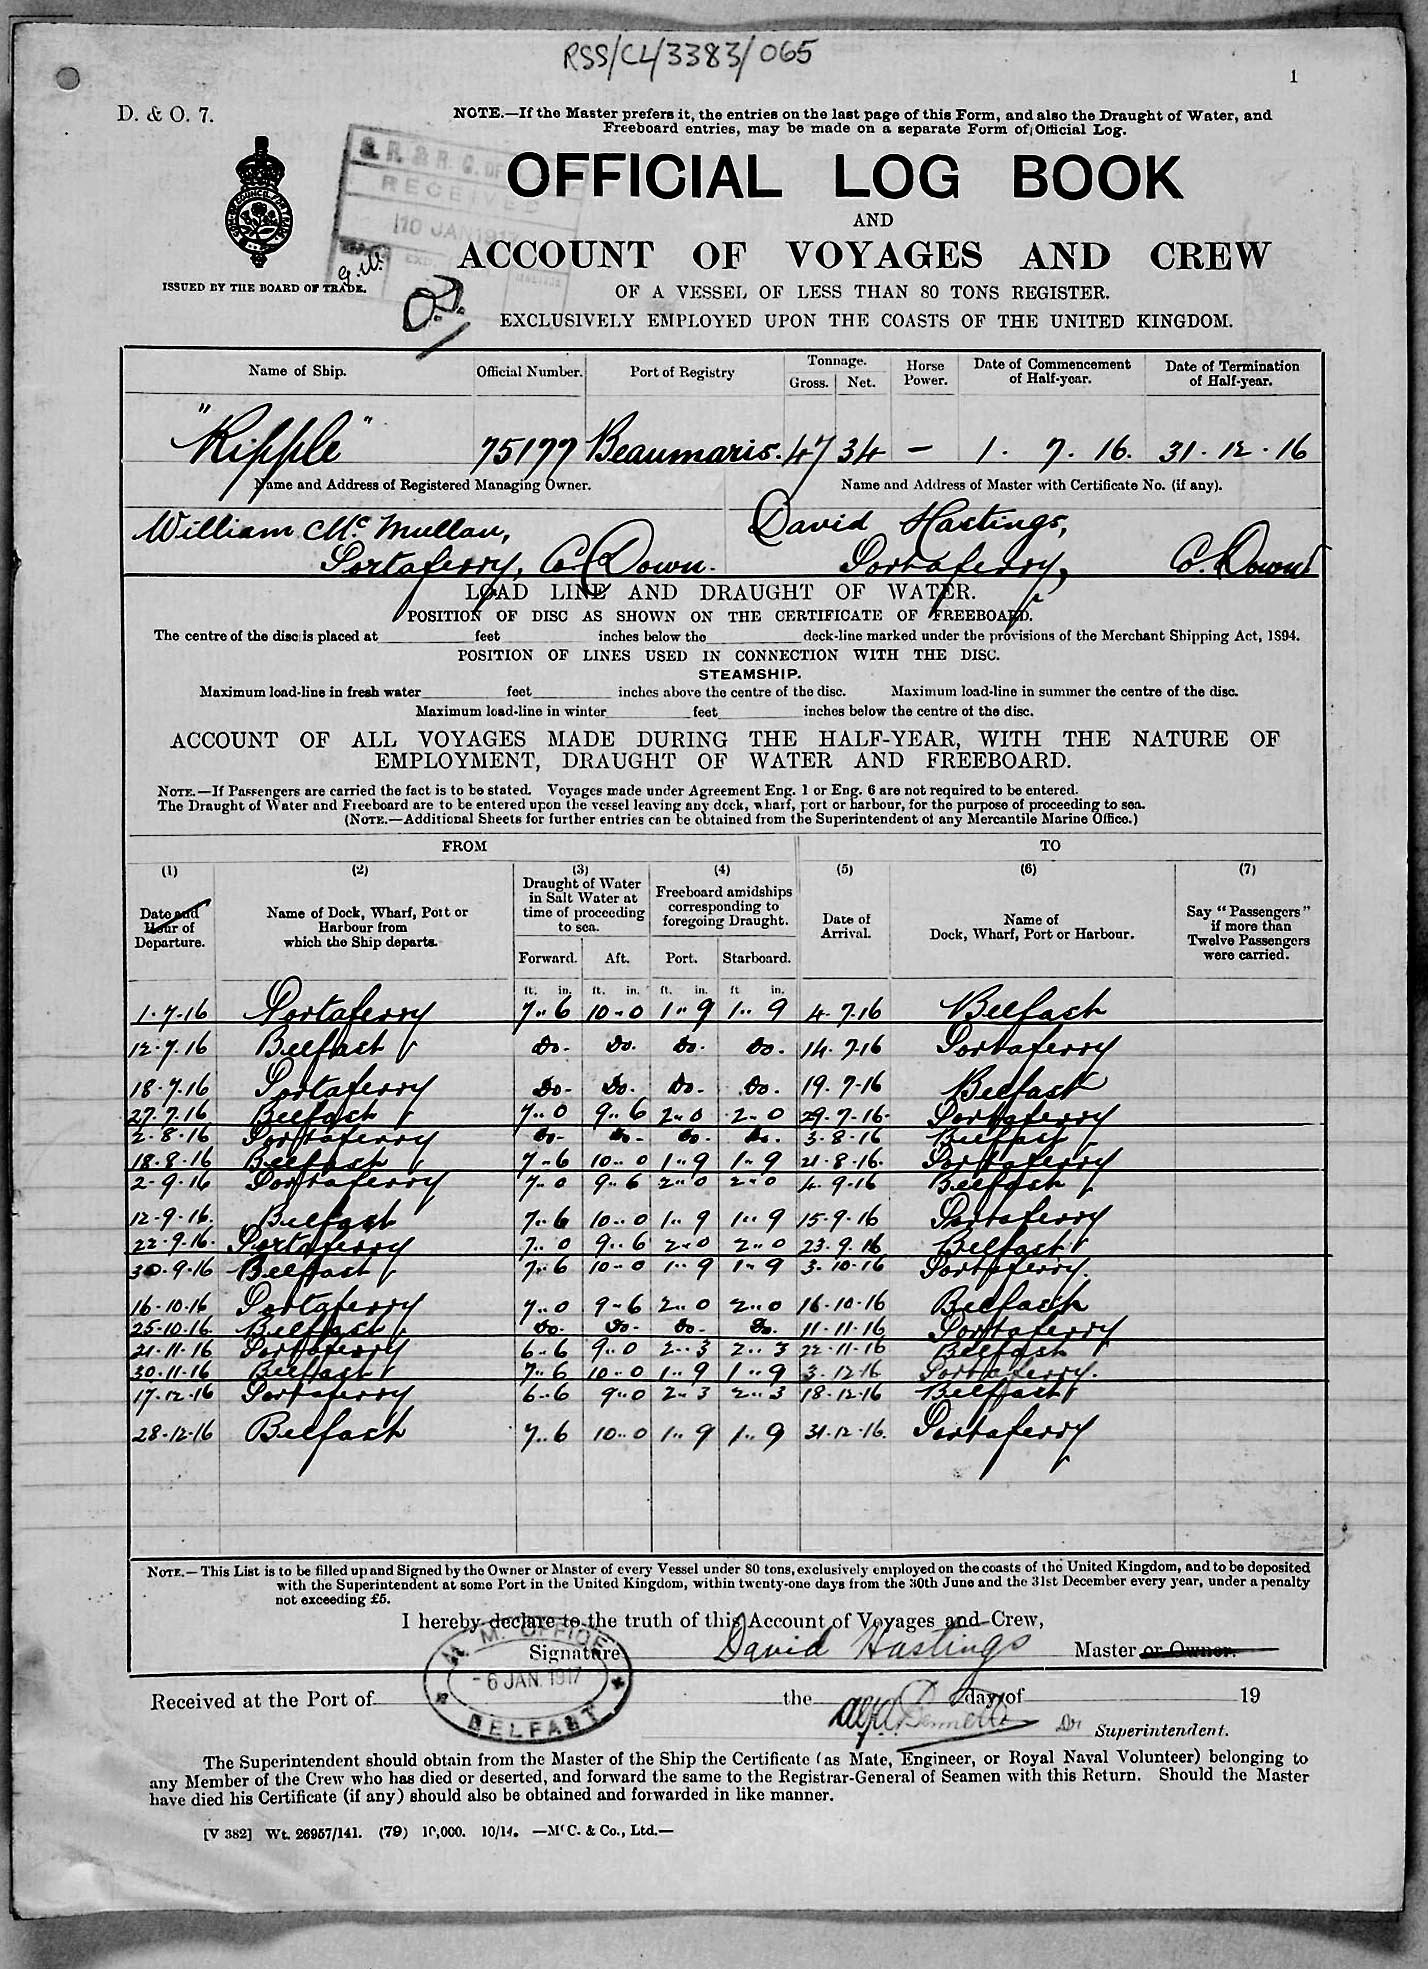 RSS/CL/3383/065
1
D. & O. 7.
NOTE.—If the Master prefers it, the entries on the last page of this Form, and also the Draught of Water, and
Freeboard entries, may be made on a separate Form of Official Log.
RECEIVED
10 JAN 1917
OFFICIAL LOG BOOK
AND
ACCOUNT OF VOYAGES AND CREW
ISSUED BY THE BOARD OF TRADE.
OF A VESSEL OF LESS THAN 80 TONS REGISTER.
EXCLUSIVELY EMPLOYED UPON THE COASTS OF THE UNITED KINGDOM.
Name of Ship. Official Number. Port of Registry Tonnage. Gross. Net. Horse Power. Date of Commencement of Half-year. Date of Termination of Half-year.
"Ripple" 75177 Beaumaris. 47 34 — 1. 7. 16. 31. 12. 16
Name and Address of Registered Managing Owner. Name and Address of Master with Certificate No. (if any).
William Mc Mullan, David Hastings,
Portaferry, Co. Down. Portaferry, Co. Down
LOAD LINE AND DRAUGHT OF WATER.
POSITION OF DISC AS SHOWN ON THE CERTIFICATE OF FREEBOARD.
The centre of the disc is placed at feet inches below the deck-line marked under the provisions of the Merchant Shipping Act, 1894.
POSITION OF LINES USED IN CONNECTION WITH THE DISC.
STEAMSHIP.
Maximum load-line in fresh water feet inches above the centre of the disc. Maximum load-line in summer the centre of the disc.
Maximum load-line in winter feet inches below the centre of the disc.
ACCOUNT OF ALL VOYAGES MADE DURING THE HALF-YEAR, WITH THE NATURE OF
EMPLOYMENT, DRAUGHT OF WATER AND FREEBOARD.
NOTE.—If Passengers are carried the fact is to be stated. Voyages made under Agreement Eng. 1 or Eng. 6 are not required to be entered.
The Draught of Water and Freeboard are to be entered upon the vessel leaving any dock, wharf, port or harbour, for the purpose of proceeding to sea.
(NOTE.—Additional Sheets for further entries can be obtained from the Superintendent of any Mercantile Marine Office.)
FROM TO
(1) (2) (3) (4) (5) (6) (7)
Date and Hour of Departure. Name of Dock, Wharf, Port or Harbour from which the Ship departs. Draught of Water in Salt Water at time of proceeding to sea. Freeboard amidships corresponding to foregoing Draught. Date of Arrival. Name of Dock, Wharf, Port or Harbour. Say "Passengers" if more than Twelve Passengers were carried.
Forward. Aft. Port. Starboard.
ft. in. ft. in. ft. in. ft in.
1.7.16 Portaferry 7..6 10..0 1..9 1..9 4.7.16 Belfast
12.7.16 Belfast Do. Do. Do. Do. 14.7.16 Portaferry
18.7.16 Portaferry Do. Do. Do. Do. 19.7.16 Belfast
27.7.16 Belfast 7..0 9..6 2..0 2..0 29.7.16 Portaferry
2.8.16 Portaferry Do. Do. Do. Do. 3.8.16 Belfast
18.8.16 Belfast 7..6 10..0 1..9 1..9 21.8.16. Portaferry
2.9.16 Portaferry 7..0 9..6 2..0 2..0 4.9.16 Belfast
12.9.16. Belfast 7..6 10..0 1..9 1..9 15.9.16 Portaferry
22.9.16. Portaferry 7..0 9..6 2..0 2..0 23.9.16 Belfast
30.9.16 Belfast 7..6 10..0 1..9 1..9 3.10.16 Portaferry.
16.10.16 Portaferry 7..0 9..6 2..0 2..0 16.10.16 Belfast
25.10.16. Belfast Do. Do. Do. Do. 11.11.16 Portaferry
21.11.16 Portaferry 6..6 9..0 2..3 2..3 22.11.16 Belfast
30.11.16 Belfast 7..6 10..0 1..9 1..9 3.12.16 Portaferry.
17.12.16 Portaferry 6..6 9..0 2..3 2..3 18.12.16 Belfast
28.12.16 Belfast 7..6 10..0 1..9 1..9 31.12.16. Portaferry
NOTE.—This List is to be filled up and Signed by the Owner or Master of every Vessel under 80 tons, exclusively employed on the coasts of the United Kingdom, and to be deposited
with the Superintendent at some Port in the United Kingdom, within twenty-one days from the 30th June and the 31st December every year, under a penalty
not exceeding £5.
I hereby declare to the truth of this Account of Voyages and Crew,
Signature David Hastings Master or Owner.
M. M. OFFICE
- 6 JAN. 1917
BELFAST
Received at the Port of the day of 19
Superintendent.
The Superintendent should obtain from the Master of the Ship the Certificate (as Mate, Engineer, or Royal Naval Volunteer) belonging to
any Member of the Crew who has died or deserted, and forward the same to the Registrar-General of Seamen with this Return. Should the Master
have died his Certificate (if any) should also be obtained and forwarded in like manner.
[V 382] Wt. 26957/141. (79) 10,000. 10/14. —McC. & Co., Ltd.—